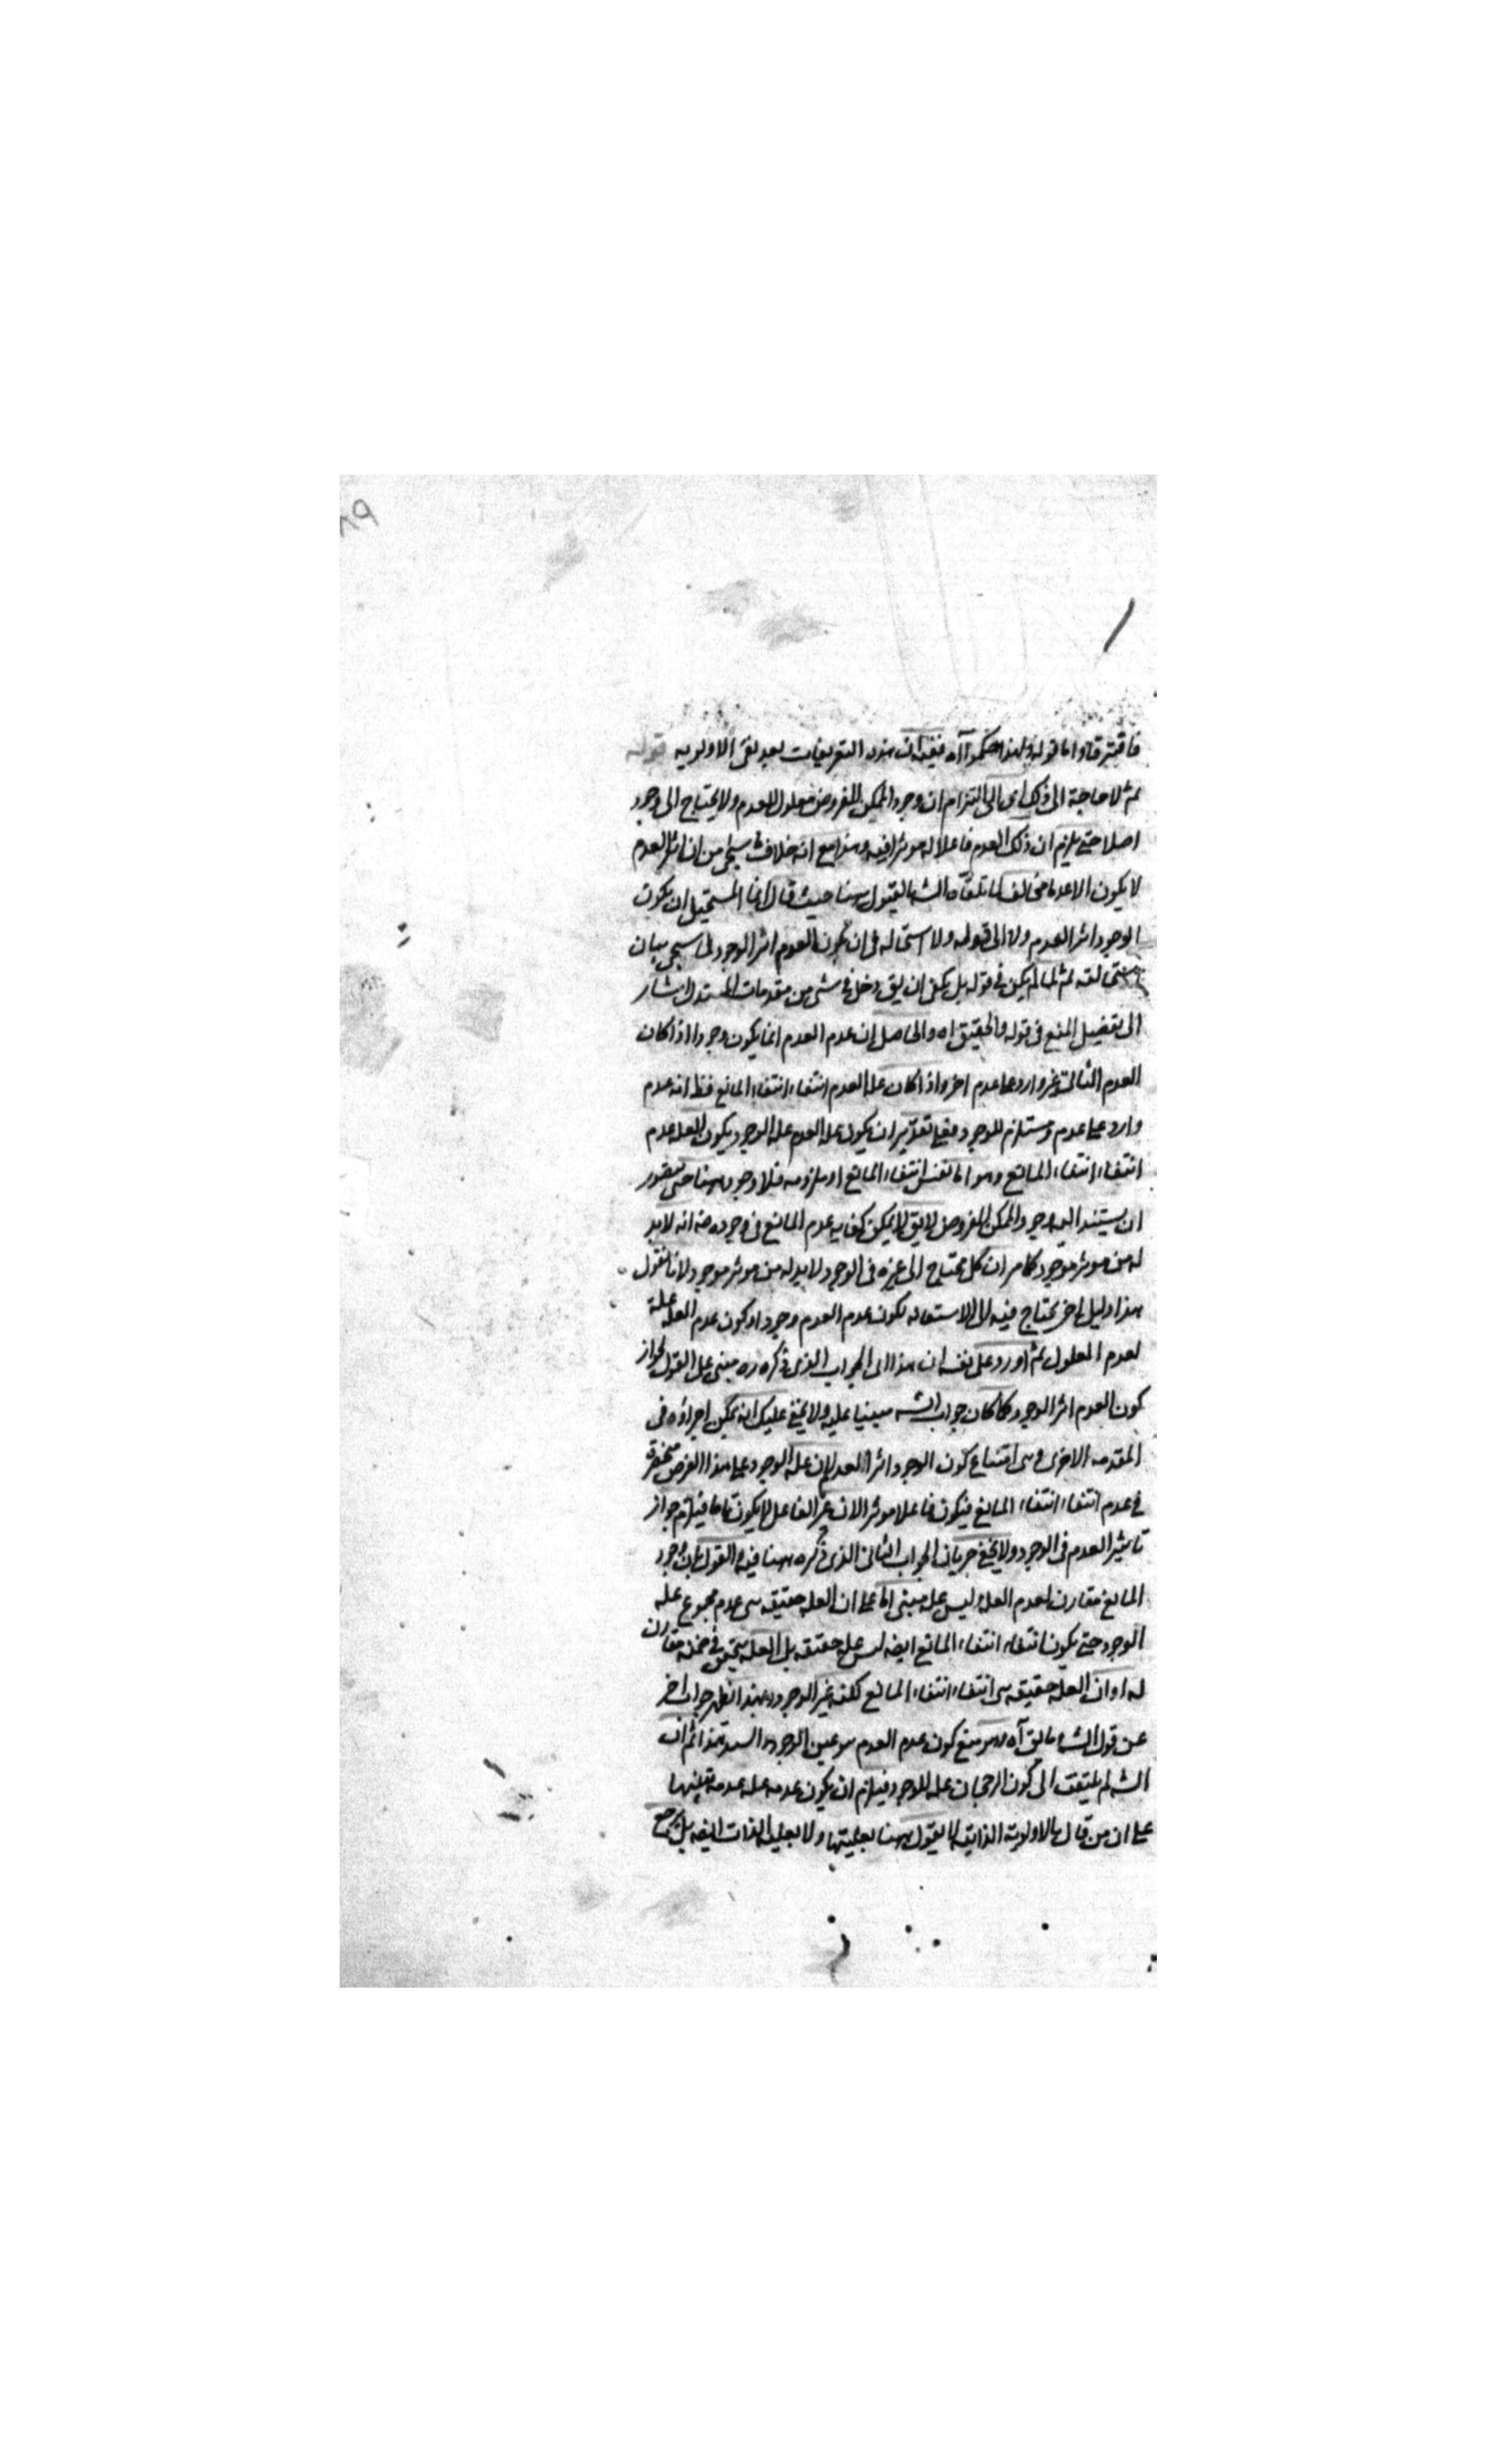 فافترقا و اما قوله ولهذا حكموا آه ففيه ان هذه التعريفات بعد نفى الاولويه قوله
ثم لا حاجة الى ذلك اى الى التزام ان وجود الممكن المفروض معلول للعدم ولا يحتاج الى وجود
اصلا حتى يلزم ان ذلك العدم فاعلا له موثرا فيه وهذا مع انه خلاف ما سيجى من ان اثر العدم
لا يكون الا عدما مخالف لما تلقاه الشه بالقبول ههنا حيث قال انما المستحيل ان يكون
الوجود اثر العدم ولا الى قوله ولا استحاله فى ان يكون العدم اثر الوجود لما سيجى بيان
استحالته ثم لما لم يكن فى قوله بل يكفى ان يق دخل فى شى من مقدمات المستدل اشار
الى تفصيل المنع فى قوله والتحقيق اه والحاصل ان عدم العدم انما يكون وجودا اذا كان
العدم الثانى غير وارد على عدم اخر واذا كان علة العدم انتفاء انتفاء المانع فظ انه عدم
وارد على عدم مستلزم للوجود فعلى تقدير ان يكون عله العدم عله الوجود يكون العله عدم
انتفاء انتفاء المانع وهو اما نفس انتفاء المانع او ملزومه فلا وجود ههنا حتى يتصور
ان يستند اليه وجود الممكن المفروض لا يق لا يمكن كفايه عدم المانع فى وجوده فـ انه لابد
له من موثر موجود كما مر ان كل محتاج الى غيره فى الوجود لابد له من موثر موجود لانا نقول
هذا دليل اخر يحتاج فيه الى الاستعانه بكون عدم العدم وجودا وكون عدم العله علة
لعدم المعلول ثم اورد على نفسه ان هذا اى الجواب الذى ذكره ره مبنى على القول بجواز
كون العدم اثر الوجود كما كان جواب الشه مبنيا عليه ولا يخفى عليك انه يمكن اجراؤه فى
المقدمه الاخرى وهى امتناع كون الوجود اثر العدم لان عله الوجود على هذا الفرض منحصرة
فى عدم انتفاء انتفاء المانع فيكون فاعلا موثرا لان غير الفاعل لا يكون تاما فيلزم جواز
تاثير العدم فى الوجود ولا يخفى جريان الجواب الثانى الذى ذكره ههنا فيه والقول بان وجود
المانع مقارن لعدم العله وليس عله مبنى اما على ان العله حقيقه هى عدم مجموع عله
الوجود حتى يكون انتفاء انتفاء المانع ايضه ليس عله حقيقه بل العله يتحقق فى ضمنه مقارن
له او ان العله حقيقه هى انتفاء انتفاء المانع لكنه غير الوجود وبهذا انظهر جواب اخر
عن قول الشه ما يق آه وهو منع كون عدم العدم هو عين الوجود والسند هذا ثم ان
الشه لم يلتفت الى كون الرجحان عله للوجود فيلزم ان يكون عدمه عله عدمه بعينها
على ان من قال بالاولوية الذاتيه لا يقول ههنا بعليتها ولا بعليه الذات ايضه بل يرجع